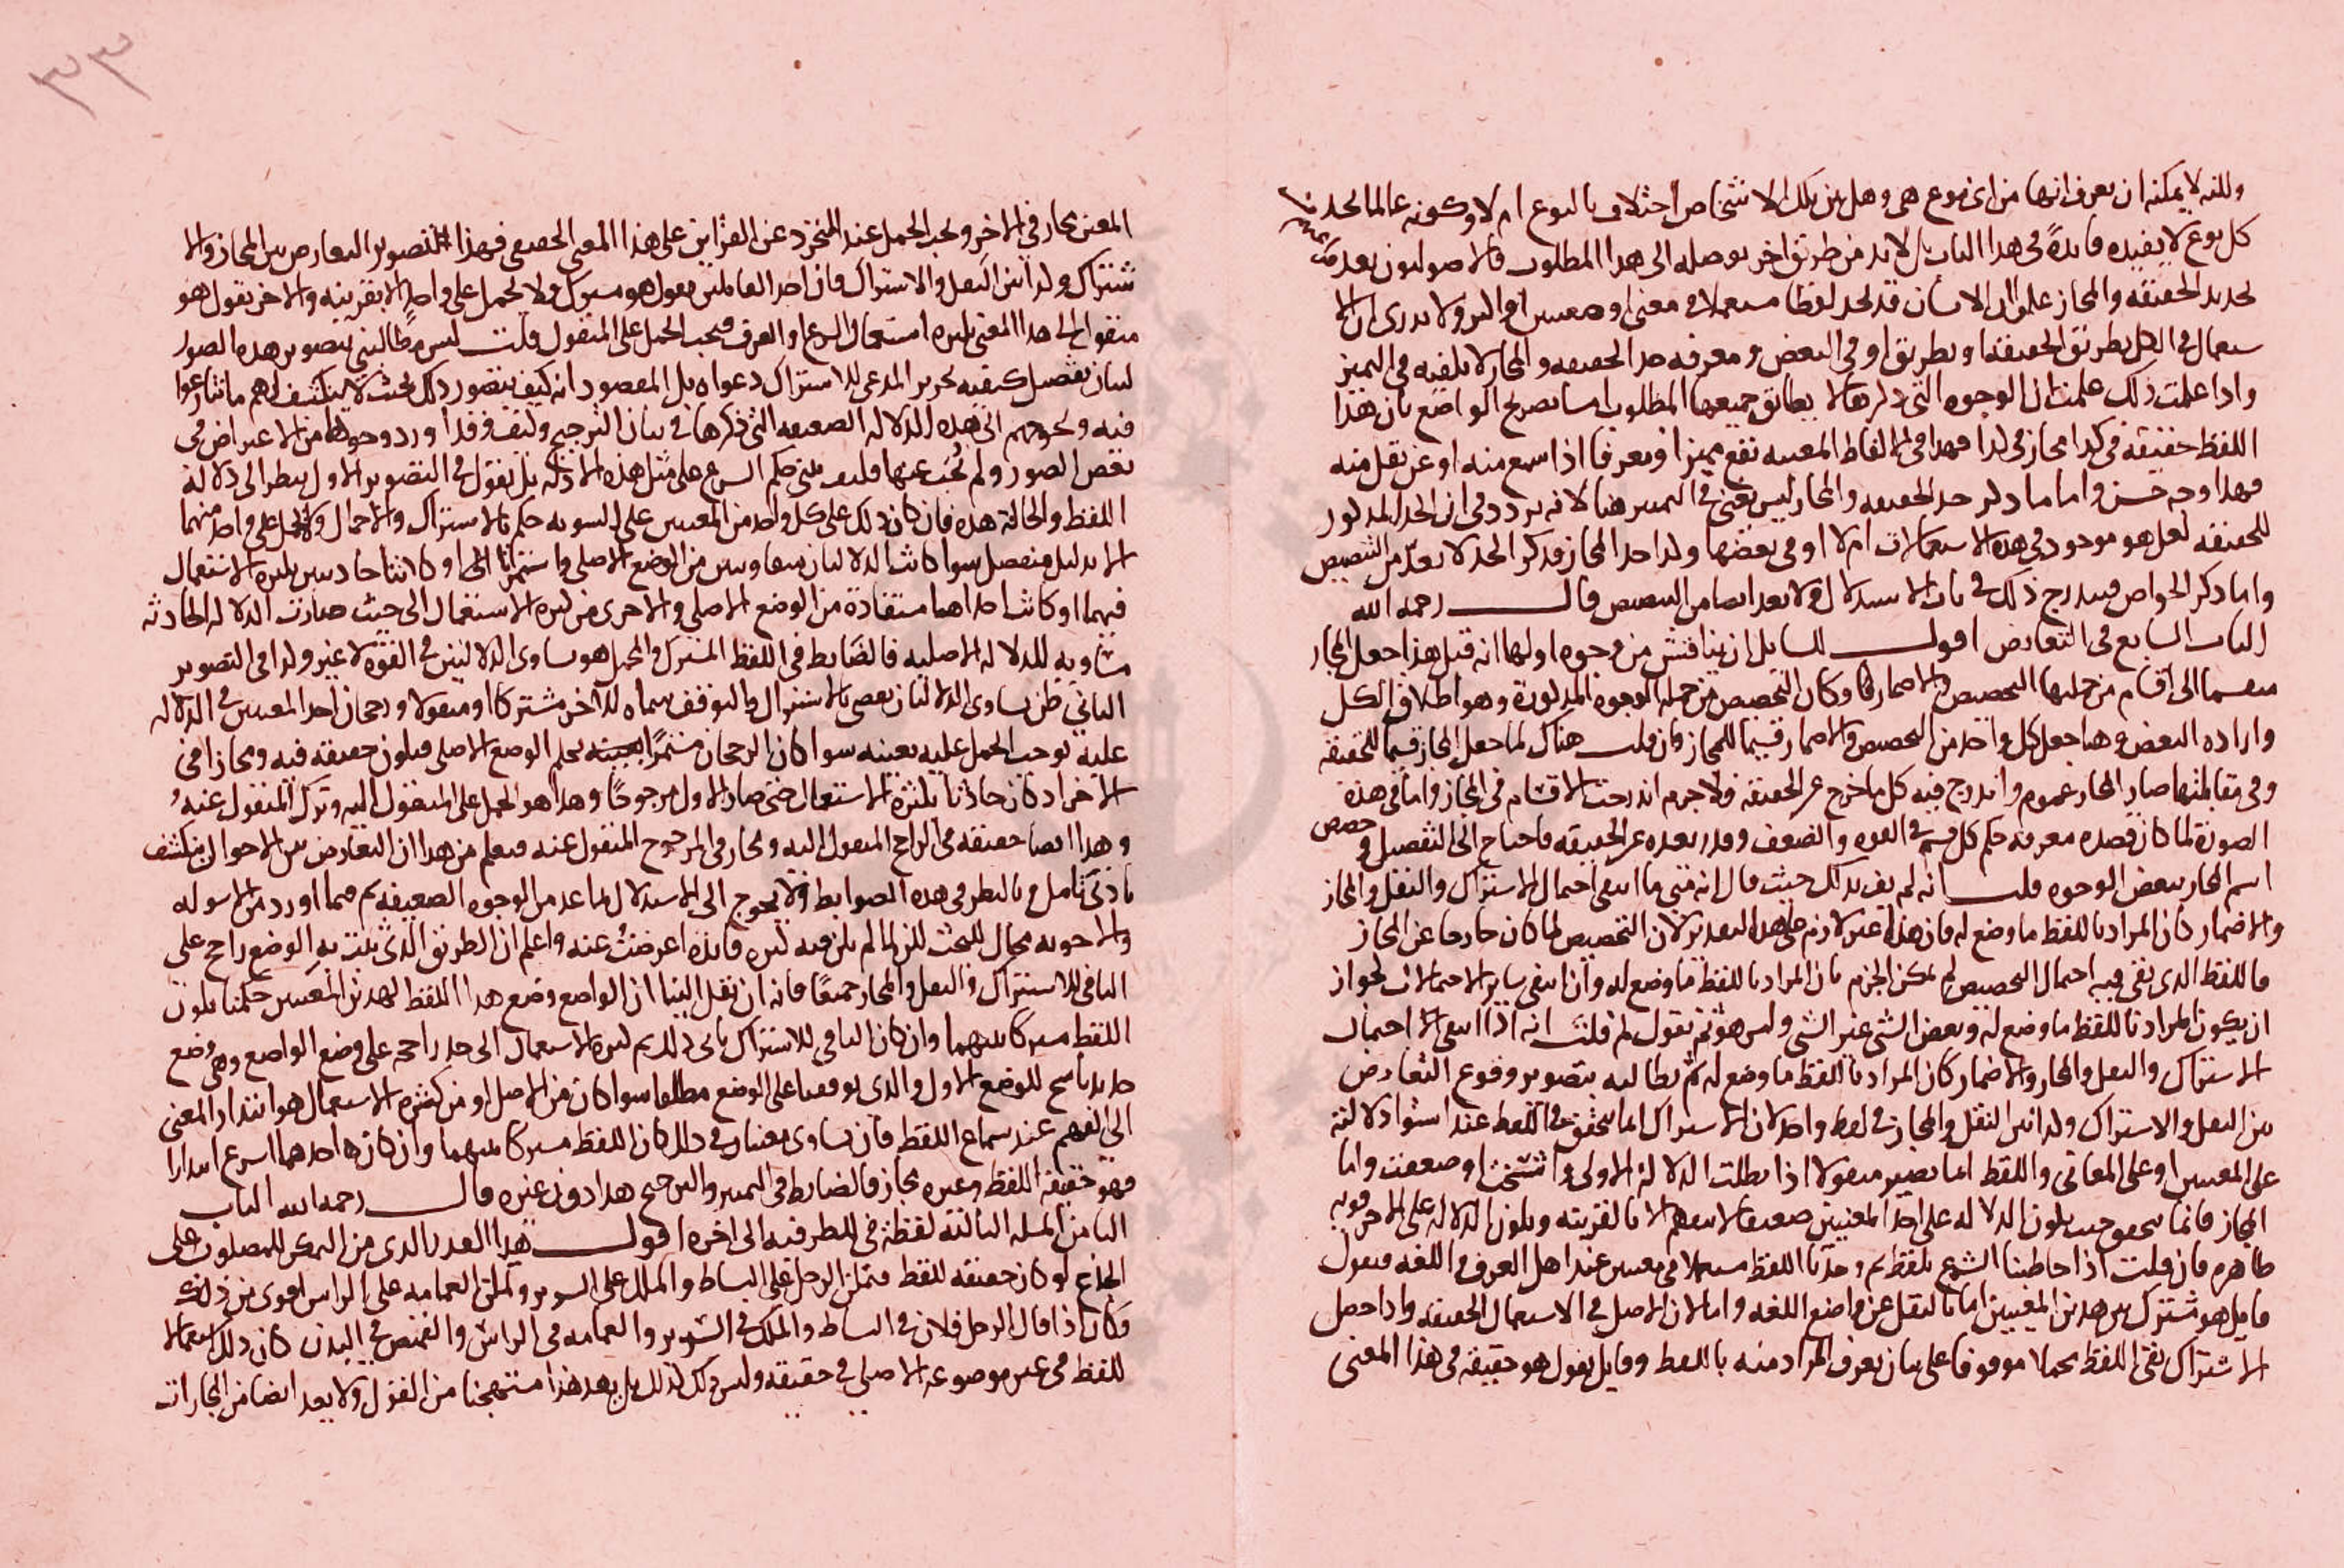 ولكنه لا يمكنه ان يعرف انها من اى نوع هى وهل بين تلك الاشخاص اختلاف بالنوع ام لا وكونه عالما بحد
كل نوع لا يفيده فايدة فى هذا الباب بل لا بد من طريق اخر يوصله الى هذا المطلوب فالاصوليون بعد
تحديد الحقيقه والمجاز علموا ان الانسان قد يجد لفظا مستعملا فى معنى او معنيين او اكثر ولا يدرى ان الا
ستعمال فى الكل بطريق الحقيقه او بطريق او فى البعض ومعرفه حد الحقيقه والمجاز لا يكفيه فى التمييز
واذا علمت ذلك علمت ان الوجوه التى ذكرها لا يطابق جميعها المطلوب اما تصريح الواضع بان هذا
اللفظ حقيقه فى كذا مجاز فى كذا فهذا فى الالفاظ المعينه تقع مميزا ومعرفا اذا سمع منه او عن نقل منه
فهذا وجه حسن واما ما ذكر حد الحقيقه والمجاز ليس يغنى فى التمييز هنا لانه يردد فى ان الحد المذكور
للحقيقه لعل هو موجود فى هذه الاستعمالات ام لا او فى بعضها وكذا حد المجاز فذكر الحد لا يعد من التنصيص
واما ذكر الخواص فيندرج ذلك فى باب الاستدلال ولا يعد ايضا من التنصيص قال رحمه الله
الباب السابع فى التعارض اقول للسايل ان يناقش من وجوه اولها انه قبل هذا جعل المجاز
منقسما الى اقسام من جملتها التخصيص والاضمار وكان التخصيص من جمله الوجوه المذكورة وهو اطلاق الكل
واراده البعض وهنا جعل كل واحد من التخصيص والاضمار قسيما للمجاز فان قلت هناك لما جعل المجاز قسيما للحقيقه
وفى مقابلتها صار المجاز عموم واندرج فيه كل ما خرج عن الحقيقه فلا جرم اندرجت الاقسام فى المجاز واما فى هذه
الصورة لما كان قصده معرفه حكم كل قسم فى القوه والضعف وقدر بعده عن الحقيقه فاحتاج الى التفصيل وخصص
اسم المجاز ببعض الوجوه قلت انه لم يف بذلك حيث قال انه متى ما انتفى احتمال الاشتراك والنقل والمجاز
والاضمار كان المراد باللفظ ما وضع له فان هذا غير لازم على هذا التقدير لان التخصيص لما كان خارجا عن المجاز
فاللفظ الذى بقى فيه احتمال التخصيص لم يمكن الجزم بان المراد باللفظ ما وضع له وان انتفى ساير الاحتمالات لجواز
ان يكون المراد باللفظ ما وضع له وبعض الشى غير الشى وليس هو ثم نقول لم قلت انه اذا انتفى الاحتمال
الاشتراك والنقل والمجاز والاضمار كان المراد باللفظ ما وضع له ثم نطالبه بتصوير وقوع التعارض
بين النقل والاشتراك وكذا بين النقل والمجاز فى لفظ واحد لان الاشتراك انما يتحقق فى اللفظ عند استوا دلالته
على المعنيين او على المعانى واللفظ انما يصير منقولا اذا بطلت الدلالة الاولى او انتسخت او ضعفت واما
المجاز فانما يتحقق حيث يكون الدلاله على احد المعنيين ضعيفا لا يفهم الا بالقرينه ويكون الدلاله على الاخر قويه
ظاهره فان قلت اذا خاطبنا الشرع بلفظ ثم وجدنا اللفظ مستعملا فى معنيين عند اهل العرف واللغه فيقول
قايل هو مشترك بين هذين المعنيين اما بالنقل عن واضع اللغه واما لان الاصل فى الاستعمال الحقيقه واذا حصل
الاشتراك بقى اللفظ مجملا موقوفا على بيان يعرف المراد منه باللفظ وقايل يقول هو حقيقه فى هذا المعنى
٣٣
المعين مجاز فى الاخر ويجب الحمل عند التجرد عن القراين على هذا المعنى الحقيقى فهذا التصوير التعارض بين المجاز والا
شتراك وكذا بين النقل والاشتراك فان احد القايلين يقول هو مشترك فلا يحمل على واحد الا بقرينه والاخر يقول هو
منقول الى هذا المعنى بكثره استعمال الشرع او العرف فيجب الحمل على المنقول قلت ليس مطالبتى بتصوير هذه الصور
لبيان تفصيل كيفيه تحرير المدعى للاشتراك دعواه بل المقصود انه كيف يتصور ذلك بحيث لا ينكشف لهم ما تنازعوا
فيه ويحوجهم الى هذه الدلاله الضعيفه التى ذكرها فى بيان الترجيح وكيف وقد اورد وجوها من الاعتراض فى
بعض الصور ولم يجب عنها فكيف يبنى حكم الشرع على مثل هذه الادله بل نقول فى التصوير الاول ينظر الى دلاله
اللفظ والحالة هذه فان كان ذلك على كل واحد من المعنيين على السويه حكم بالاشتراك والاجمال ولا يحمل على واحد منهما
الا بدليل منفصل سوا كانت الدلالتان متساويتين من الوضع الاصلى واستمرتا الى او كانتا حادثتين بكثره الاستعمال
فيهما او كانت احداهما مستفادة من الوضع الاصلى والاخرى من كثره الاستعمال الى حيث صارت الدلاله الحادثه
مساويه للدلاله الاصليه فالضابط فى اللفظ المشترك والمجمل هو تساوى الدلالتين فى القوه لا غير وكذا فى التصوير
الثانى ظن تساوى الدلالتان يقضى بالاشتراك والتوقف سماه الاخر مشتركا او منقولا ورجحان احد المعنيين فى الدلاله
عليه يوجب الحمل عليه بعينه سوا كان الرجحان مستمرا بحكم الوضع الاصلى فيكون حقيقه فيه ومجازا فى
الاخر او كان حادثا بكثره الاستعمال حتى صار الاول مرجوحا وهذا هو الحمل على المنقول اليه وترك المنقول عنه
وهذا ايضا حقيقه فى الراجح المنقول اليه ومجاز فى المرجوح المنقول عنه فيعلم من هذا ان التعارض بين الاحوال ينكشف
بادنى تامل وبالنظر فى هذه الضوابط ولا يحوج الى الاستدلال بما عد من الوجوه الضعيفه ثم فيما اورد من الاسوله
والاجوبه مجال للبحث لكن لما لم يكن فيه كثره فايده اعرضت عنه واعلم ان الطريق الذى يثبت به الوضع راجح على
النافى للاشتراك والنقل والمجاز جميعا فانه ان نقل الينا ان الواضع وضع هذا اللفظ لهذين المعنيين حكمنا بكون
اللفظ مشتركا بينهما وان كان النافى للاشتراك ياتى كثره الاستعمال الى حد راجحه على وضع الواضع وهى وضع
جديد ناسخ للوضع الاول والذى يوقفنا على الوضع مطلقا سوا كان من الاصل او من كثره الاستعمال هو ابتدار المعنى
الى الفهم عند سماع اللفظ فان تساوى معنيان فى ذلك كان اللفظ مشتركا بينهما وان كان احدهما اسرع ابتدارا
فهو حقيقه اللفظ وغيره مجاز فالضابط فى التمييز والترجيح هذا دون غيره قال رحمه الله الباب
الثامن المسله الثالثه لفظة فى للظرفيه الى اخره اقول هذا القدر الذى من التمكن للمصلوب على
الجذع لو كان حقيقه للفظ فتمكن الرجل على البساط والملك على السرير وتمكن العمامه على الراس اقوى من ذلك
فكان اذا قال الرجل فلان فى البساط والملك فى السرير والعمامه فى الراس والقميص فى البدن كان ذلك استعمالا
للفظ فى غير موضوعه الاصلى فى حقيقه وليس كذلك بل يعد هذا مستهجنا من القول ولا يعد ايضا من المجازات